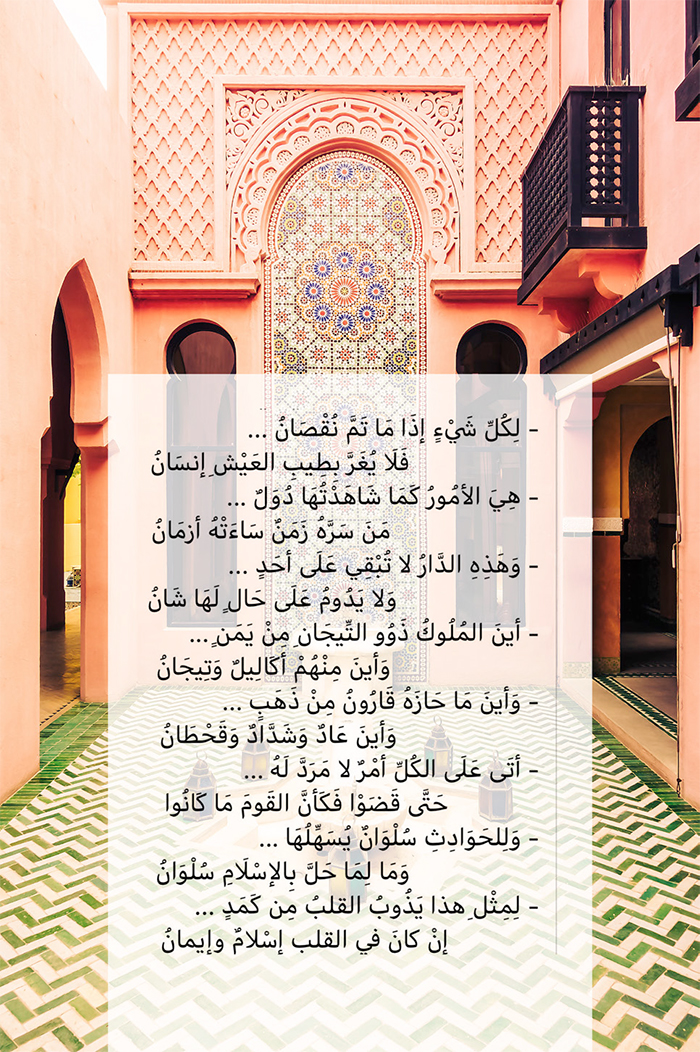 - لِكُلِّ شَيْءٍ إذَا مَا تَمَّ نُقْصَانُ ...
فَلَا يُغَرَّ بِطِيبِ العَيْشِ إنسَانُ
- هِيَ الأمُورُ كَمَا شَاهَدْتُهَا دُوَلٌ ...
مَنَ سَرَّهُ زَمَنٌ سَاءَتْهُ أزمَانُ
- وَهَذِهِ الدَّارُ لا تُبْقِي عَلَى أحَدٍ ...
وَلا يَدُومُ عَلَى حَالٍ لَهَا شَانُ
- أينَ المُلُوكُ ذَوُو التِّيجَانِ مِنْ يَمَنٍ ...
وَأينَ مِنْهُمْ أكَالِيلٌ وَتِيجَانُ
- وَأينَ مَا حَازَهُ قَارُونُ مِنْ ذَهَبٍ ...
وَأينَ عَادٌ وَشَدَّادٌ وَقَحْطَانُ
- أتَى عَلَى الكُلِّ أمْرٌ لا مَرَدَّ لَهُ ...
حَتَّى قَضَوْا فَكَأنَّ القَومَ مَا كَانُوا
- وَلِلحَوَادِثِ سُلْوَانٌ يُسَهِّلُهَا ...
وَمَا لِمَا حَلَّ بِالإسْلَامِ سُلْوَانُ
- لِمِثْلِ هذا يَذُوبُ القلبُ مِن كَمَدٍ ...
إنْ كانَ في القلب إسْلامٌ وإيمانُ